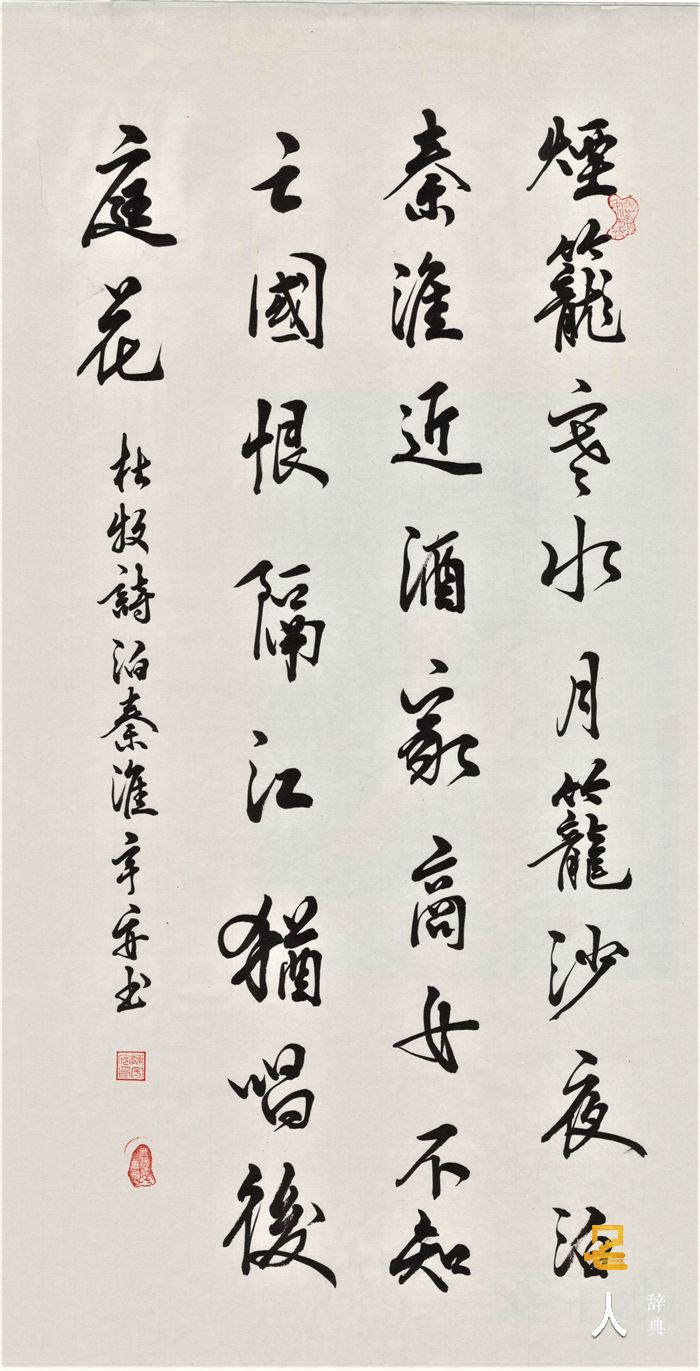 煙籠寒水月籠沙夜泊
秦淮近酒家商女不知
亡國恨隔江猶唱後
庭花
杜牧詩泊秦淮辛书
人
辞典